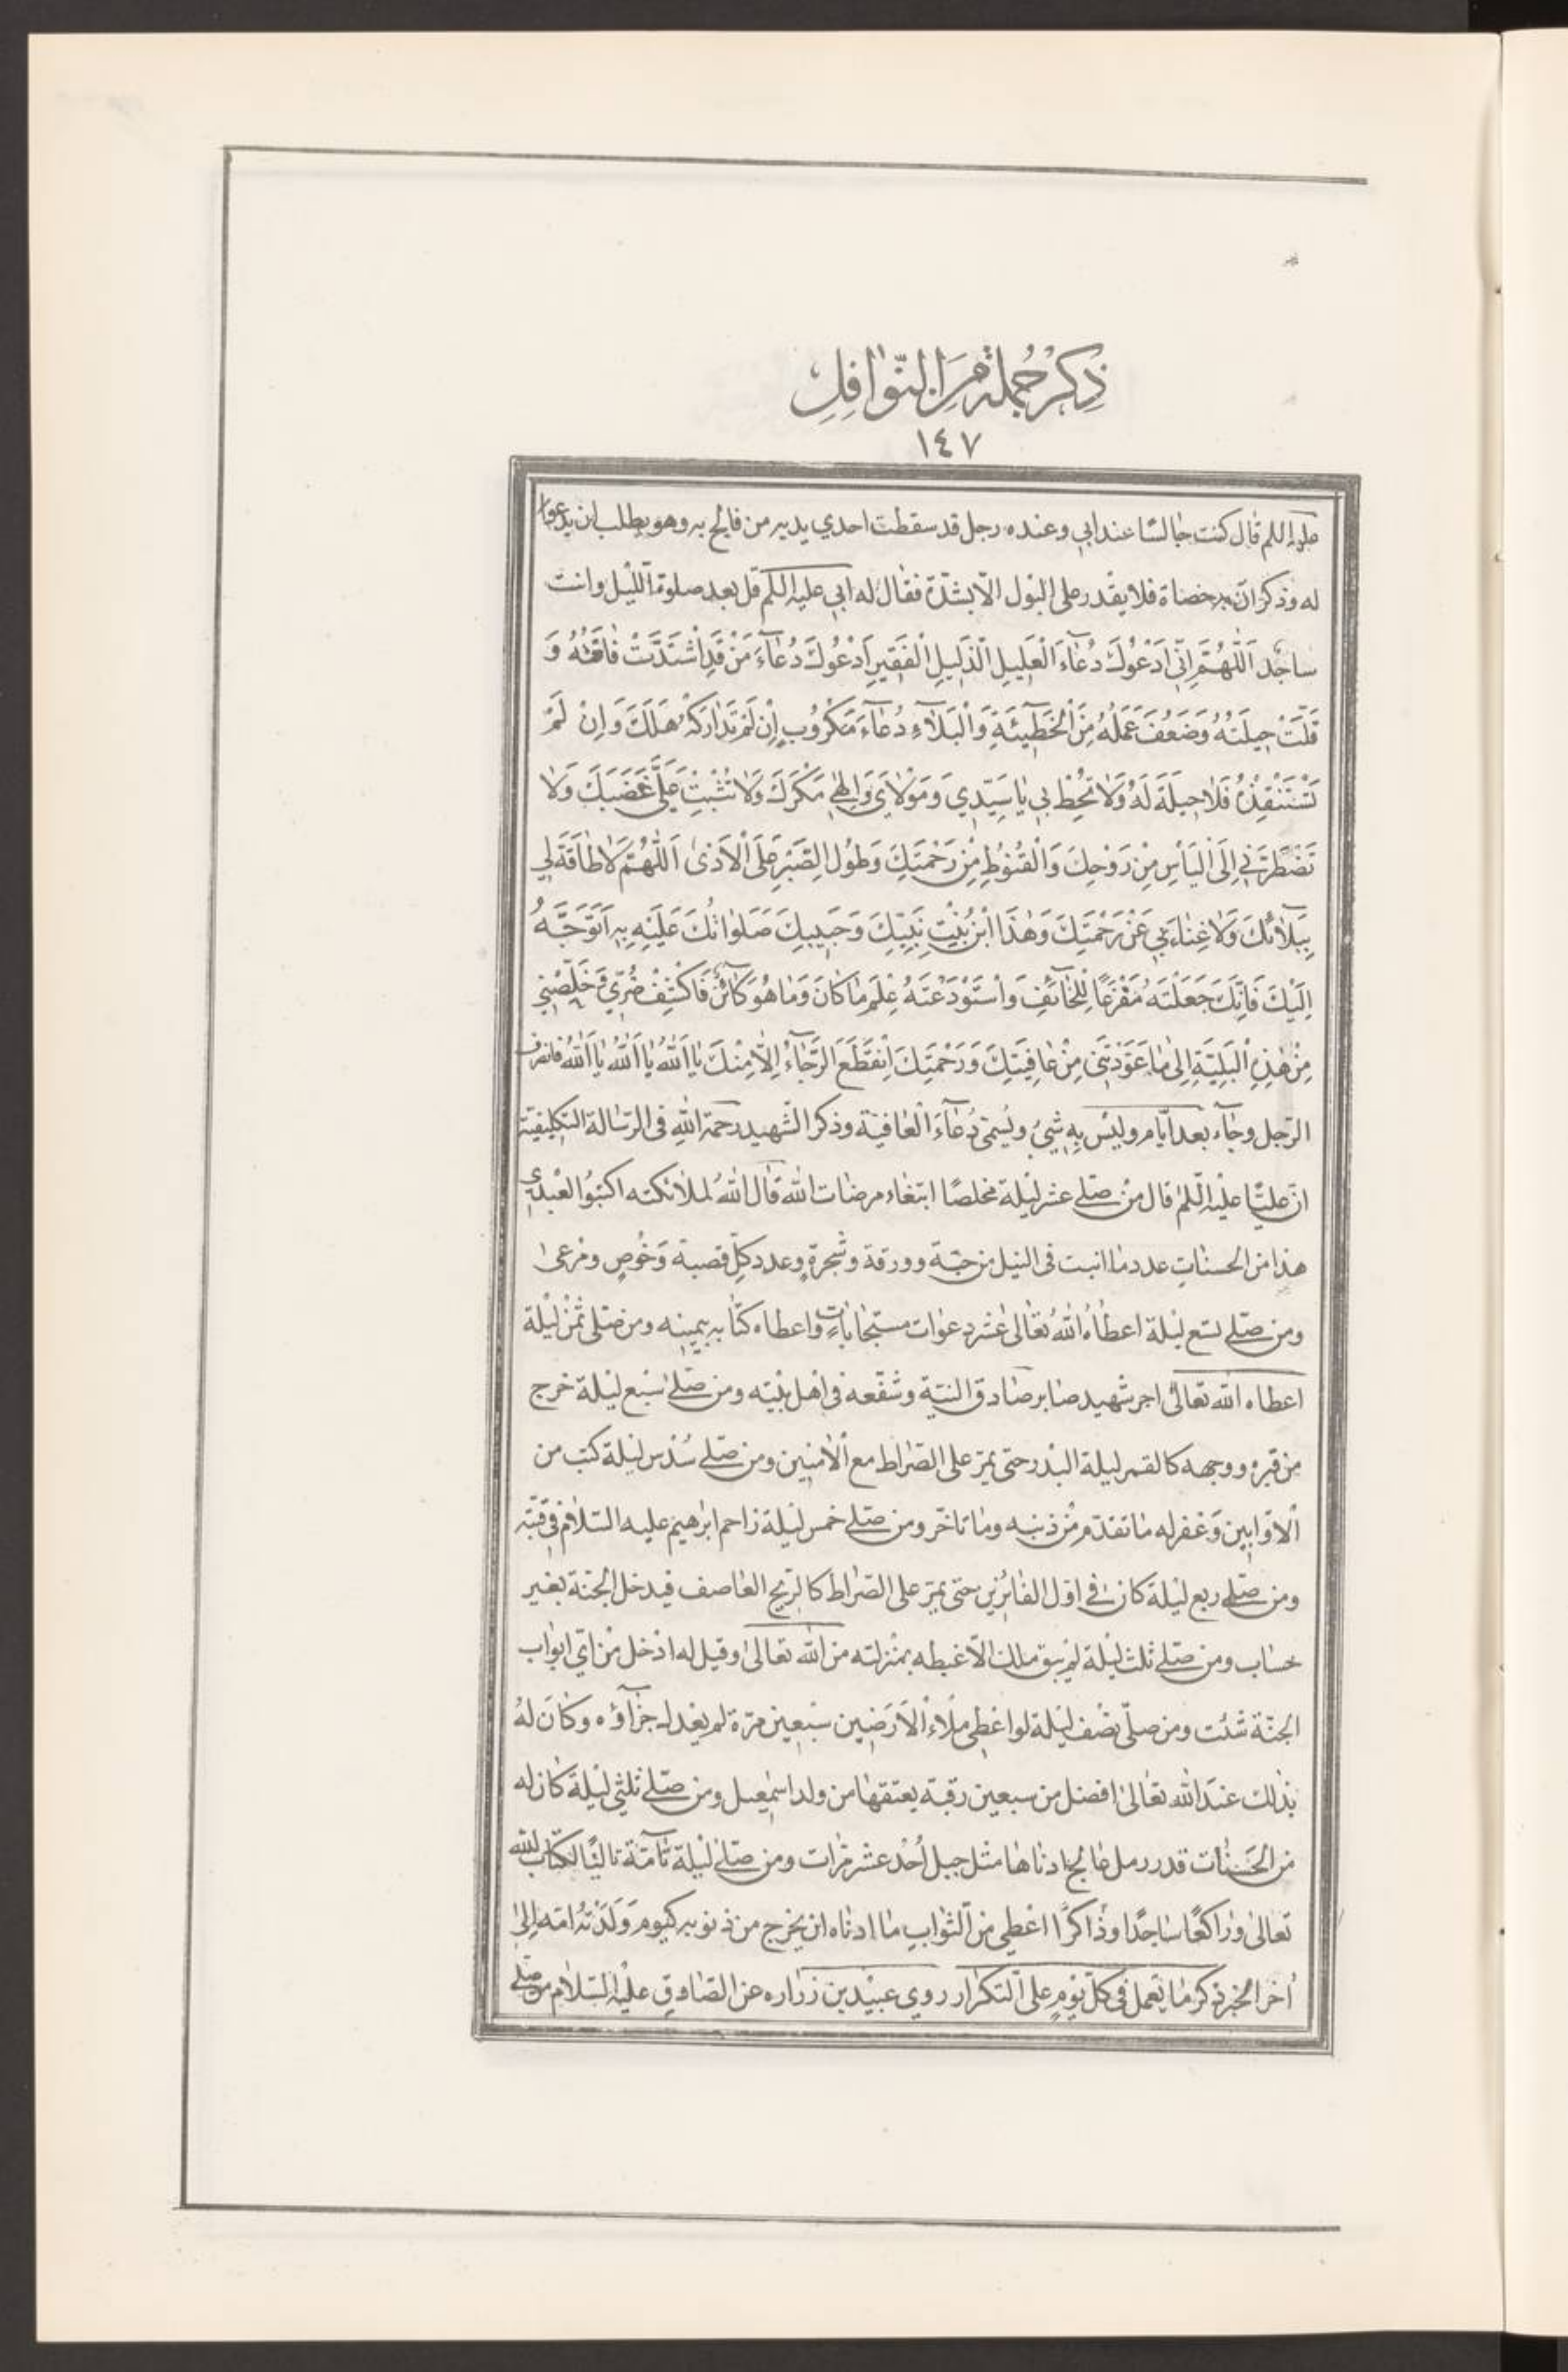 ذِكْرُ جُمْلَةٍ مِنَ النَّوٰافِلِ
١٤٧
عليه السلم قٰال كنت جٰالسًا عند ابي وعنده رجل قد سقطت احدي يديه من فالج به وهو يطلب ان يدعوا
له وذكر انّ به حصاة فلا يقدر على البَوْل الّا بشدّة فقٰال له ابي عليه السلم قل بعد صلوة اللّيْل وانت
ساجد اَللّٰهُمَّ اِنّي اَدْعُوكَ دُعٰآءَ الْعَليلِ الذَّليلِ الْفَقيرِ اَدْعُوكَ دُعٰآءَ مَنْ قَدِ اشْتَدَّتْ فٰاقَتُهُ وَ
قَلَّتْ حيلَتُهُ وَضَعُفَ عَمَلُهُ مِنَ الْخَطيٓئَةِ وَالْبَلآءِ دُعٰآءَ مَكْرُوبٍ اِنْ لَمْ تَدٰارَكْهُ هَلَكَ وَاِنْ لَمْ
تَسْتَنْقِذْهُ فَلٰا حيلَةَ لَهُ وَلٰا تُحِطْ بي يٰا سَيِّدي وَمَوْلٰايَ وَاِلٰهي مَكْرَكَ وَلٰا تُثْبِتْ عَلَيَّ غَضَبَكَ وَلٰا
تَضْطَرَّني اِلَى الْيَأْسِ مِنْ رَوْحِكَ وَالْقُنُوطِ مِنْ رَحْمَتِكَ وَطُولِ الصَّبْرِ عَلَى الْاَذىٰ اَللّٰهُمَّ لٰا طٰاقَةَ لي
بِبَلآئِكَ وَلٰا غِنٰاءَ بي عَنْ رَحْمَتِكَ وَهٰذَا ابْنُ بِنْتِ نَبِيِّكَ وَحَبيبِكَ صَلَوٰاتُكَ عَلَيْهِ بِهِ اَتَوَجَّهُ
اِلَيْكَ فَاِنَّكَ جَعَلْتَهُ مَفْزَعًا لِلْخٰآئِفِ وَاسْتَوْدَعْتَهُ عِلْمَ مٰا كٰانَ وَمٰا هُوَ كٰآئِنٌ فَاكْشِفْ ضُرّي وَخَلِّصْني
مِنْ هٰذِهِ الْبَلِيَّةِ اِلىٰ مٰا عَوَّدْتَني مِنْ عٰافِيَتِكَ وَرَحْمَتِكَ اِنْقَطَعَ الرَّجٰآءُ اِلّٰا مِنْكَ يٰا اَللّٰهُ يٰا اَللّٰهُ يٰا اَللّٰهُ فانصرف
الرّجل وجٰآء بعد ايّام وليْس بِه شيْءٌ ويُسمّىٰ دُعٰآءَ الْعٰافيَة وذكر الشّهيد رحمة اللّٰهِ فى الرّسٰالة التكليفيّة
انّ عليًّا عليْه السّلم قال منْ صلّى عشر ليْلة مخلصًا ابتغٰاء مرضٰات اللّٰه قٰال اللّٰهُ لملائكته اكتبُوا لعَبْدي
هذا من الحسنٰاتِ عدد مٰا انبت فى النيل من حبّة وورقة وشجرةٍ وعدد كلّ قصبة وَخُوصٍ ومَرعىٰ
ومن صلّى تسع ليْلة اعطٰاهُ اللّٰهُ تعٰالىٰ عشر دعوٰات مستجٰابٰاتٍ واعطاه كتٰابه بيمينه ومن صلّى ثُمْنَ ليْلة
اعطاه اللّه تعٰالىٰ اجر شهيد صٰابر صٰادق النيّة وشفّعه في اهل بيْته ومن صلّى سُبع ليْلة خرج
من قبره ووجهه كالقمر ليلة البدر حتى يمرّ على الصّراط مع الْاٰمنين ومن صلّى سُدس ليْلة كتب من
الْاوّابين وَغفر له مٰا تقدّم مِنْ ذنبه ومٰا تاخّر ومن صلّى خمس ليْلة زاحم ابرٰهيم عليه السّلام في قبّته
ومن صلّى ربع ليْلة كان في اوّل الفٰائزين حتى يمرّ على الصّراط كالرّيح العٰاصف فيدخل الجنّة بغير
حسٰاب ومن صلّى ثلث ليْلة لم يبق ملك الّا غبطه بمنزلته من اللّٰه تعٰالىٰ وقيل له ادْخل منْ ايّ ابوٰاب
الجنّة شئت ومن صلّى نصْف ليْلة لو اعْطي ملْاءَ الْاَرَضين سبْعين مرّة لم يعْدل جزٰآؤُه وكٰانَ لهُ
بذٰلك عندَ اللّٰه تعٰالىٰ افضل من سبعين رقبة يعتقهٰا من ولد اسمٰعيل ومن صلّى ثلثي ليْلة كٰان له
من الحَسَنٰات قدر رمل عٰالج ادنٰاهٰا مثل جبل اُحُد عشر مرّات ومن صلّى ليْلة تٰآمّة تاليًا لكتٰاب اللّٰه
تعالىٰ ورٰاكعًا سٰاجدًا وذٰاكرًا اعْطي من الثّوابِ مٰا ادنٰاه ان يخرج من ذنوبه كيومِ وَلَدَتْهُ امّه اِلىٰ
اٰخر الخبر ذكر مٰا يُعمل فى كلّ يوْمٍ على التكرٰار روي عبيْد بن زرٰاره عن الصّادقِ عليْه السّلام من صلّى